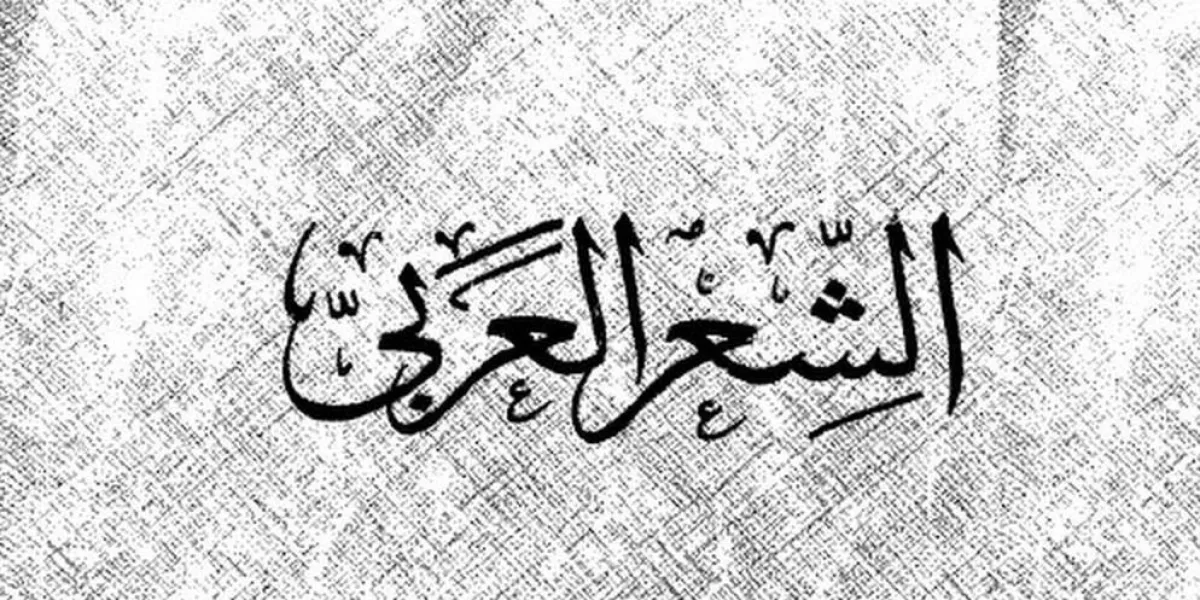 الشِّعْر العَرَبيّ